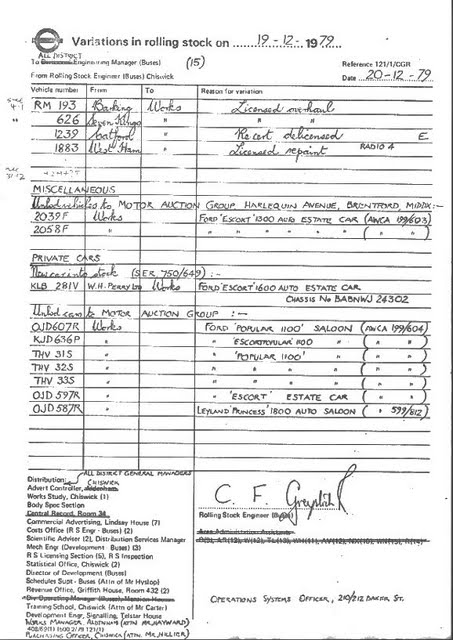 Variations in rolling stock on 19-12-1979
ALL DISTRICT
To Engineering Manager (Buses) (15) Reference 121/1/CGR
From Rolling Stock Engineer (Buses) Chiswick Date 20-12-79
Vehicle number From To Reason for variation
RM 193 Barking Works Licensed overhaul
626 Seven Kings " " "
1239 Catford " Recert delicensed E
1883 West Ham " Licensed repaint RADIO A
MISCELLANEOUS
Unlicd vehicles to MOTOR AUCTION GROUP HARLEQUIN AVENUE, BRENTFORD, MIDDX:-
2039F Works FORD 'ESCORT' 1300 AUTO ESTATE CAR (AWCA 199/603)
2058F " " " " " " ( " " )
PRIVATE CARS
New car into stock (SER. 750/649):-
KLB 281V W.H. PERRY LTD Works FORD 'ESCORT' 1600 AUTO ESTATE CAR
CHASSIS No BABNWJ 24302
Unlicd cars to MOTOR AUCTION GROUP :-
OJD607R Works FORD 'POPULAR 1100' SALOON (AWCA 199/604)
KJD636P " " ESCORT POPULAR 1100 " ( " " )
THV 31S " " 'POPULAR 1100' " ( " " )
THV 32S " " " " ( " " )
THV 33S " " " " ( " " )
OJD 597R " " 'ESCORT' ESTATE CAR ( " " )
OJD 587R " LEYLAND PRINCESS' 1800 AUTO SALOON ( " 599/812)
ALL DISTRICT GENERAL MANAGERS
Distribution:
CHISWICK
Advert Controller, Aldenham
Works Study, Chiswick (1)
Body Spec Section
Central Record, Room 34
Commercial Advertising, Lindsay House (7)
Costs Office (R S Engr - Buses) (2)
Scientific Adviser (2), Distribution Services Manager
Mech Engr (Development - Buses) (3)
R S Licensing Section (5), R S Inspection
Statistical Office, Chiswick (2)
Director of Development (Buses)
Schedules Supt - Buses (Attn of Mr Hyslop)
Revenue Office, Griffith House, Room 432 (2)
Div Operating Manager (Buses)
Training School, Chiswick (Attn of Mr Carter)
Development Engr, Signalling, Telstar House
WORKS MANAGER, ALDENHAM (ATTN MR HAYWARD)
PURCHASING OFFICER, CHISWICK (ATTN MR HILLIER)
C. F.
Rolling Stock Engineer (Buses)
Area Administration Assistants
OPERATIONS SYSTEMS OFFICER, 210/212 BAKER ST.